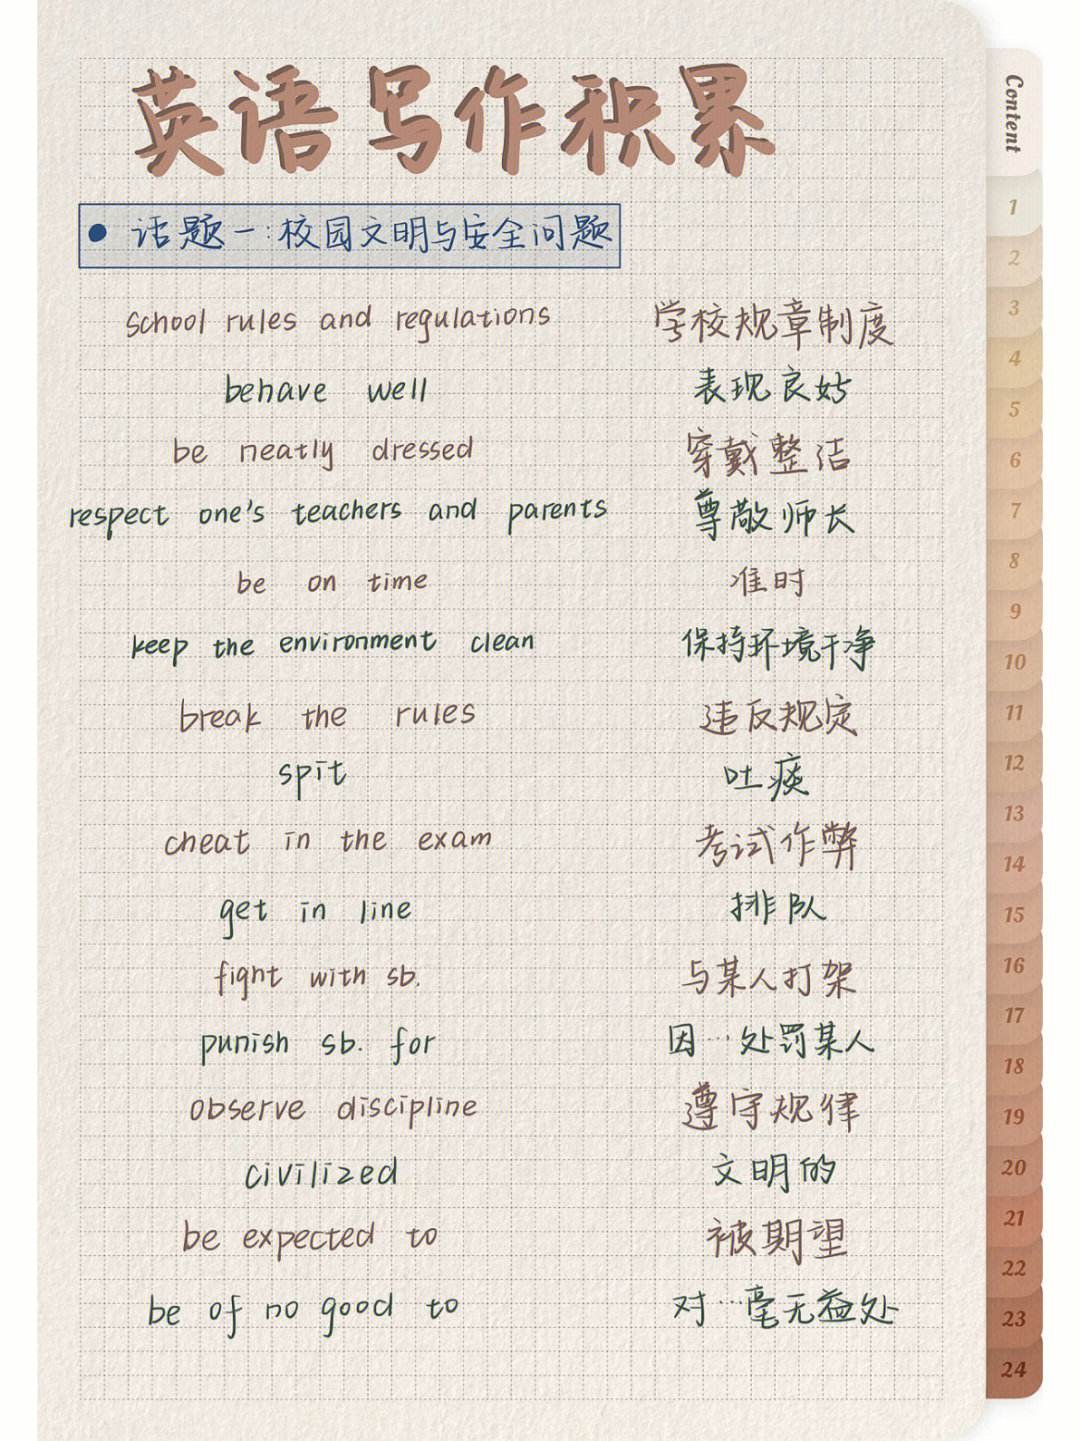 英语写作积累
Content
• 话题一:校园文明与安全问题
school rules and regulations 学校规章制度
behave well 表现良好
be neatly dressed 穿戴整洁
respect one's teachers and parents 尊敬师长
be on time 准时
keep the environment clean 保持环境干净
break the rules 违反规定
spit 吐痰
cheat in the exam 考试作弊
get in line 排队
fight with sb. 与某人打架
punish sb. for 因…处罚某人
observe discipline 遵守规律
civilized 文明的
be expected to 被期望
be of no good to 对…毫无益处
1
2
3
4
5
6
7
8
9
10
11
12
13
14
15
16
17
18
19
20
21
22
23
24